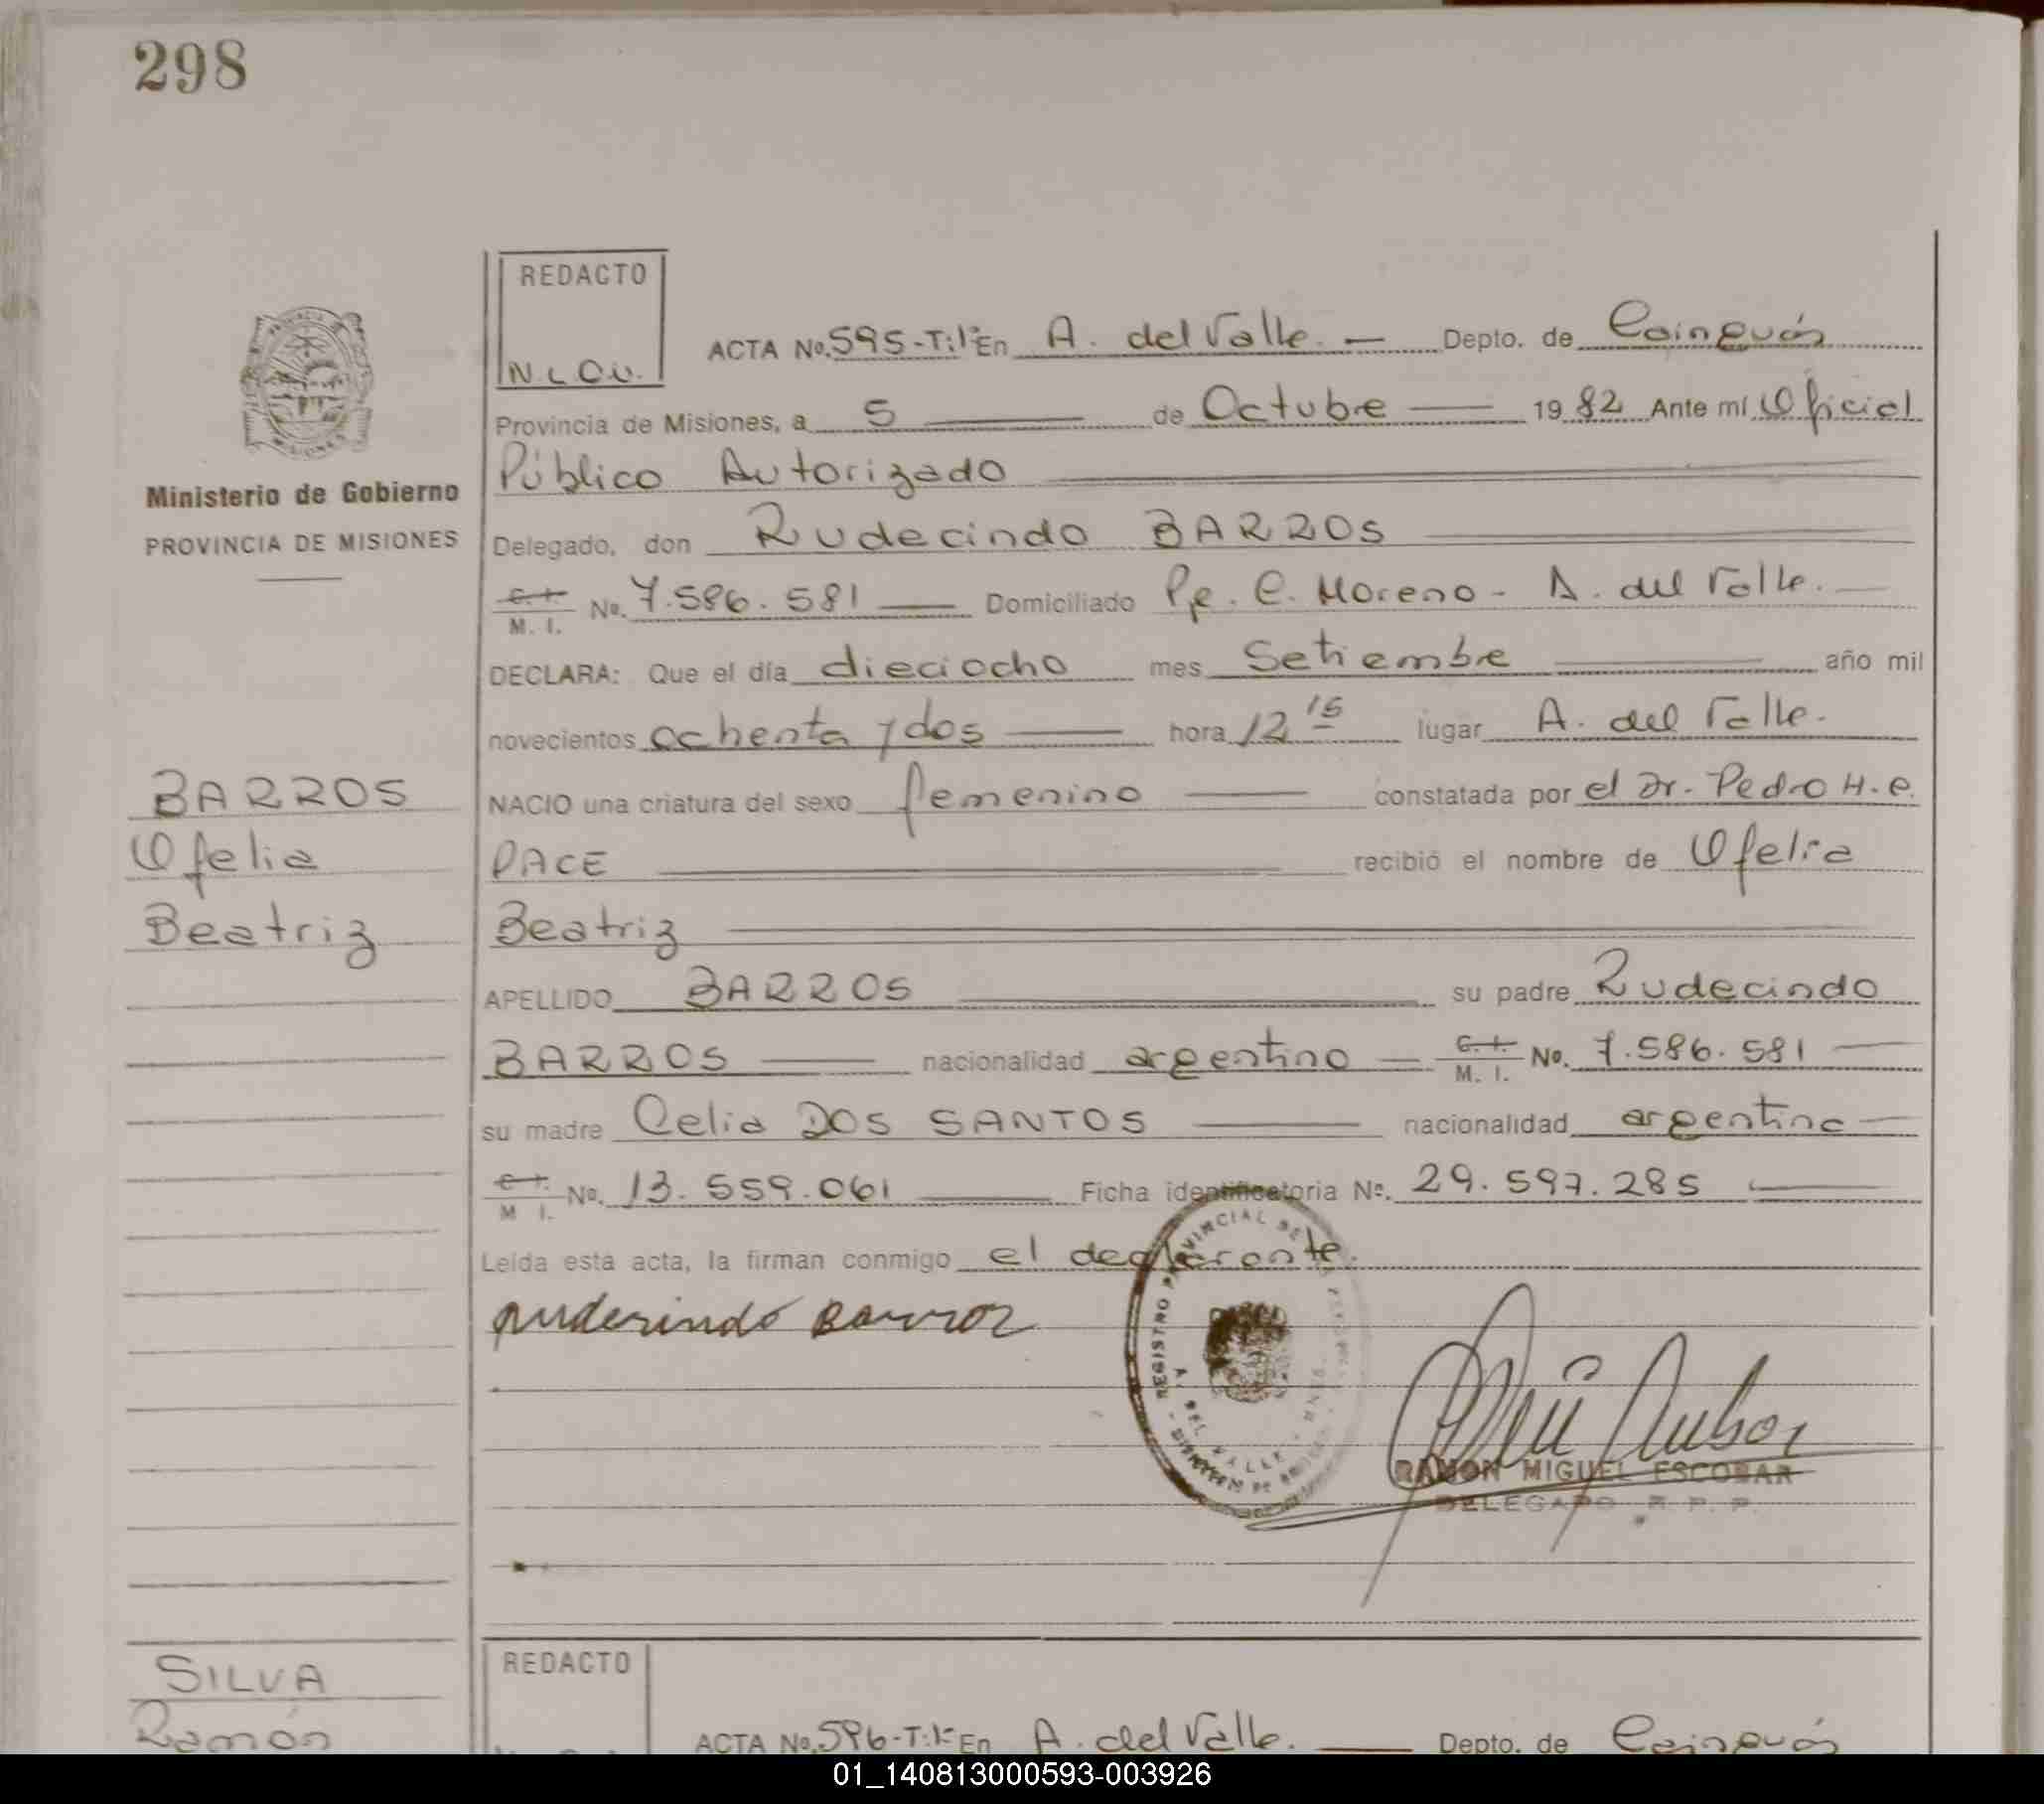 298
REDACTO
N.L.O.V.
ACTA No. 595-T:1º En A. del Valle. — Depto. de Cainguás
Provincia de Misiones, a 5 — de Octubre — 19 82 Ante mí Oficial
Público Autorizado
Delegado, don Rudecindo BARROS
C. I. M. I. No. 7.586.581 — Domiciliado Pje. C. Moreno - A. del Valle. —
DECLARA: Que el día dieciocho mes Setiembre — año mil
novecientos ochenta y dos — hora 12 15 lugar A. del Valle.
NACIO una criatura del sexo femenino — constatada por el Dr. Pedro H. C.
PACE — recibió el nombre de Ofelia
Beatriz
APELLIDO BARROS — su padre Rudecindo
BARROS — nacionalidad argentino — C. I. M. I. No. 7.586.581 —
su madre Celia DOS SANTOS — nacionalidad argentina —
C. I. M. I. No. 13.559.061 — Ficha identificatoria No. 29.597.285 —
Leída esta acta, la firman conmigo el declarante.
Rudesindo Barros
REGISTRO PROVINCIAL DE
A. DEL VALLE
RAMON MIGUEL ESCOBAR
DELEGADO R. P. P.
Ministerio de Gobierno
PROVINCIA DE MISIONES
BARROS
Ofelia
Beatriz
SILVA
Ramón
REDACTO
ACTA No. 596-T:1º En A. del Valle. — Depto. de Cainguás
01_140813000593-003926